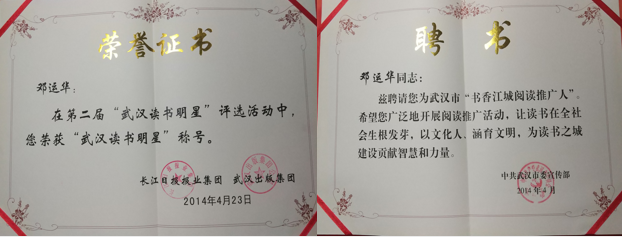 荣誉证书
邓运华：
在第二届“武汉读书明星”评选活动中，
您荣获“武汉读书明星”称号。
长江日报报业集团 武汉出版集团
2014年4月23日
聘 书
邓运华同志：
兹聘请您为武汉市“书香江城阅读推广人”。
希望您广泛地开展阅读推广活动，让读书在全社
会生根发芽，以文化人、涵育文明，为读书之城
建设贡献智慧和力量。
中共武汉市委宣传部
2014年4月